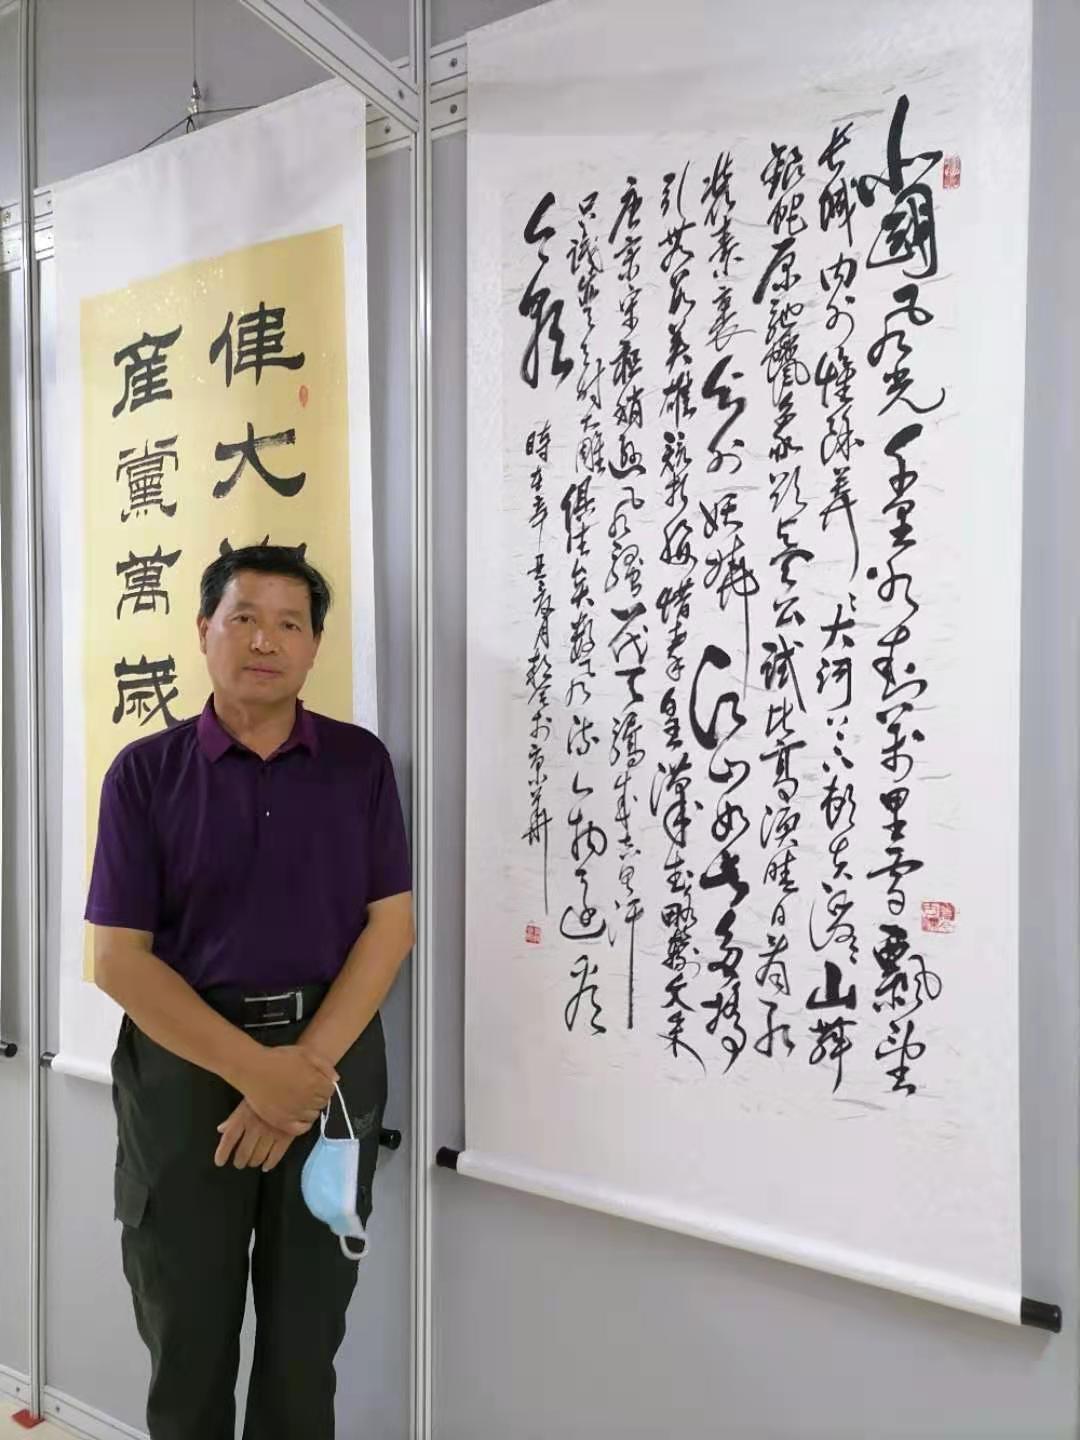 北國风光千里冰封萬里雪飄望
长城内外惟餘莽莽大河上下顿失滔滔山舞
银蛇原驰蠟象欲与天公试比高须晴日看红
装素裹分外妖娆江山如此多娇
引无数英雄竞折腰惜秦皇漢武略输文采
唐宗宋祖稍逊风骚一代天骄成吉思汗
只识弯弓射大雕俱往矣数风流人物还看
今朝
時在辛丑夏月
偉大
產黨萬歲